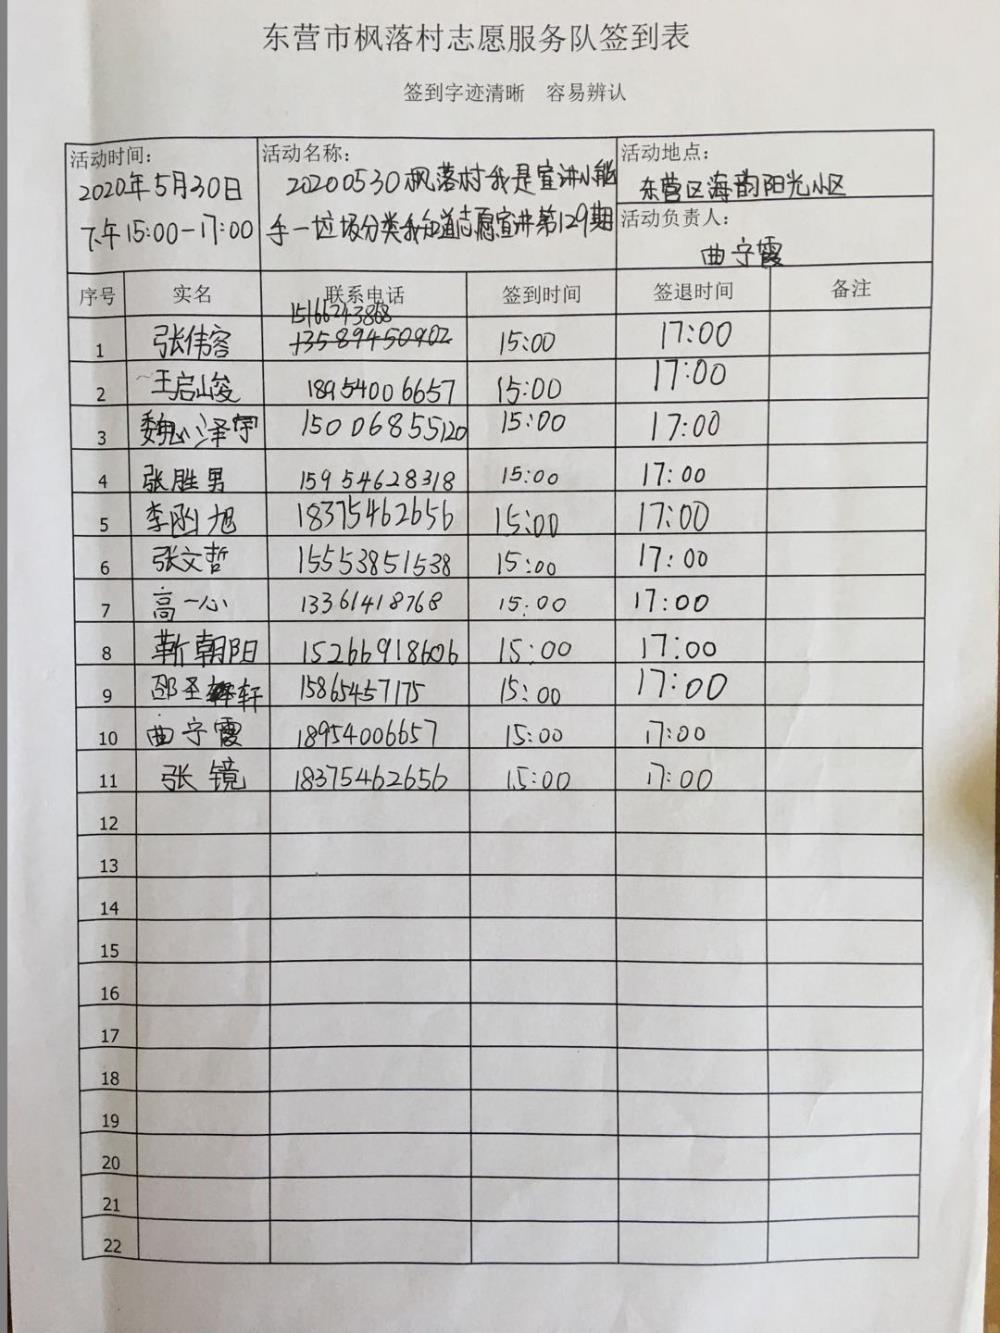 东营市枫落村志愿服务队签到表
签到字迹清晰 容易辨认
活动时间：
2020年5月30日
下午15:00-17:00
活动名称：
20200530枫落村我是宣讲小能
手一垃圾分类我知道志愿宣讲第129期
活动地点：
东营区海韵阳光小区
活动负责人：
曲守霞
序号 实名 联系电话 签到时间 签退时间 备注
15166243868
1 张伟容 13589450902 15:00 17:00
2 王启峻 18954006657 15:00 17:00
3 魏泽宇 15006855120 15:00 17:00
4 张胜男 15954628318 15:00 17:00
5 李函旭 18375462656 15:00 17:00
6 张文哲 15553851538 15:00 17:00
7 高一心 13361418768 15:00 17:00
8 靳朝阳 15266918606 15:00 17:00
9 邵圣轩 15865457175 15:00 17:00
10 曲守霞 18954006657 15:00 17:00
11 张镜 18375462656 15:00 17:00
12
13
14
15
16
17
18
19
20
21
22